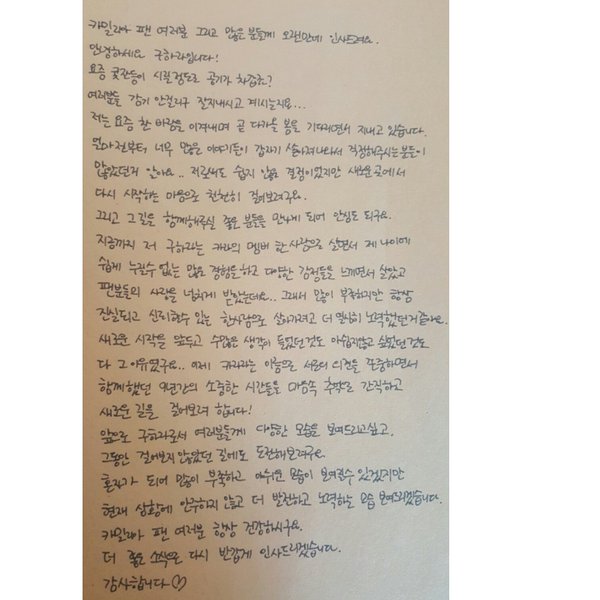 카밀리아 팬 여러분 그리고 많은 분들께 오랜만에 인사드려요.
안녕하세요 구하라입니다!
요즘 콧잔등이 시릴정도로 공기가 차갑죠?
여러분들 감기 안걸리구 잘지내시고 계시는지요...
저는 요즘 찬 바람을 이겨내며 곧 다가올 봄을 기다리면서 지내고 있습니다.
얼마전부터 너무 많은 이야기들이 갑자기 쏟아져나와서 걱정해주시는분들이
많았던거 알아요.. 저로써도 쉽지 않은 결정이었지만 새로운곳에서
다시 시작하는 마음으로 천천히 걸어보려구요.
그리고 그길을 함께해주실 좋은 분들을 만나게 되어 안심도 되구요.
지금까지 저 구하라는 카라의 멤버 한사람으로 살면서 제 나이에
쉽게 누릴수 없는 많은 경험을하고 다양한 감정들을 느끼면서 살았고
팬분들의 사랑을 넘치게 받았는데요.. 그래서 많이 부족하지만 항상
진실되고 신뢰할수 있는 한사람으로 살아가려고 더 열심히 노력했던거같아요.
새로운 시작을 앞두고 수많은 생각이 들었던것도 아쉽지않고 싶었던것도
다 그 이유였구요.. 이제 카라라는 이름으로 서로의 의견을 존중하면서
함께했던 9년간의 소중한 시간들을 마음속 추억으로 간직하고
새로운 길을 걸어보려 합니다!
앞으로 구하라로서 여러분들께 다양한 모습을 보여드리고싶고.
그동안 걸어보지않았던 길에도 도전해보려구요.
혼자가 되어 많이 부족하고 아쉬운 모습이 보여질수 있겠지만
현재 상황에 안주하지 않고 더 발전하고 노력하는 모습 보여드리겠습니다.
카밀리아 팬 여러분 항상 건강하시구요.
더 좋은 소식으로 다시 반갑게 인사드리겠습니다.
감사합니다♡